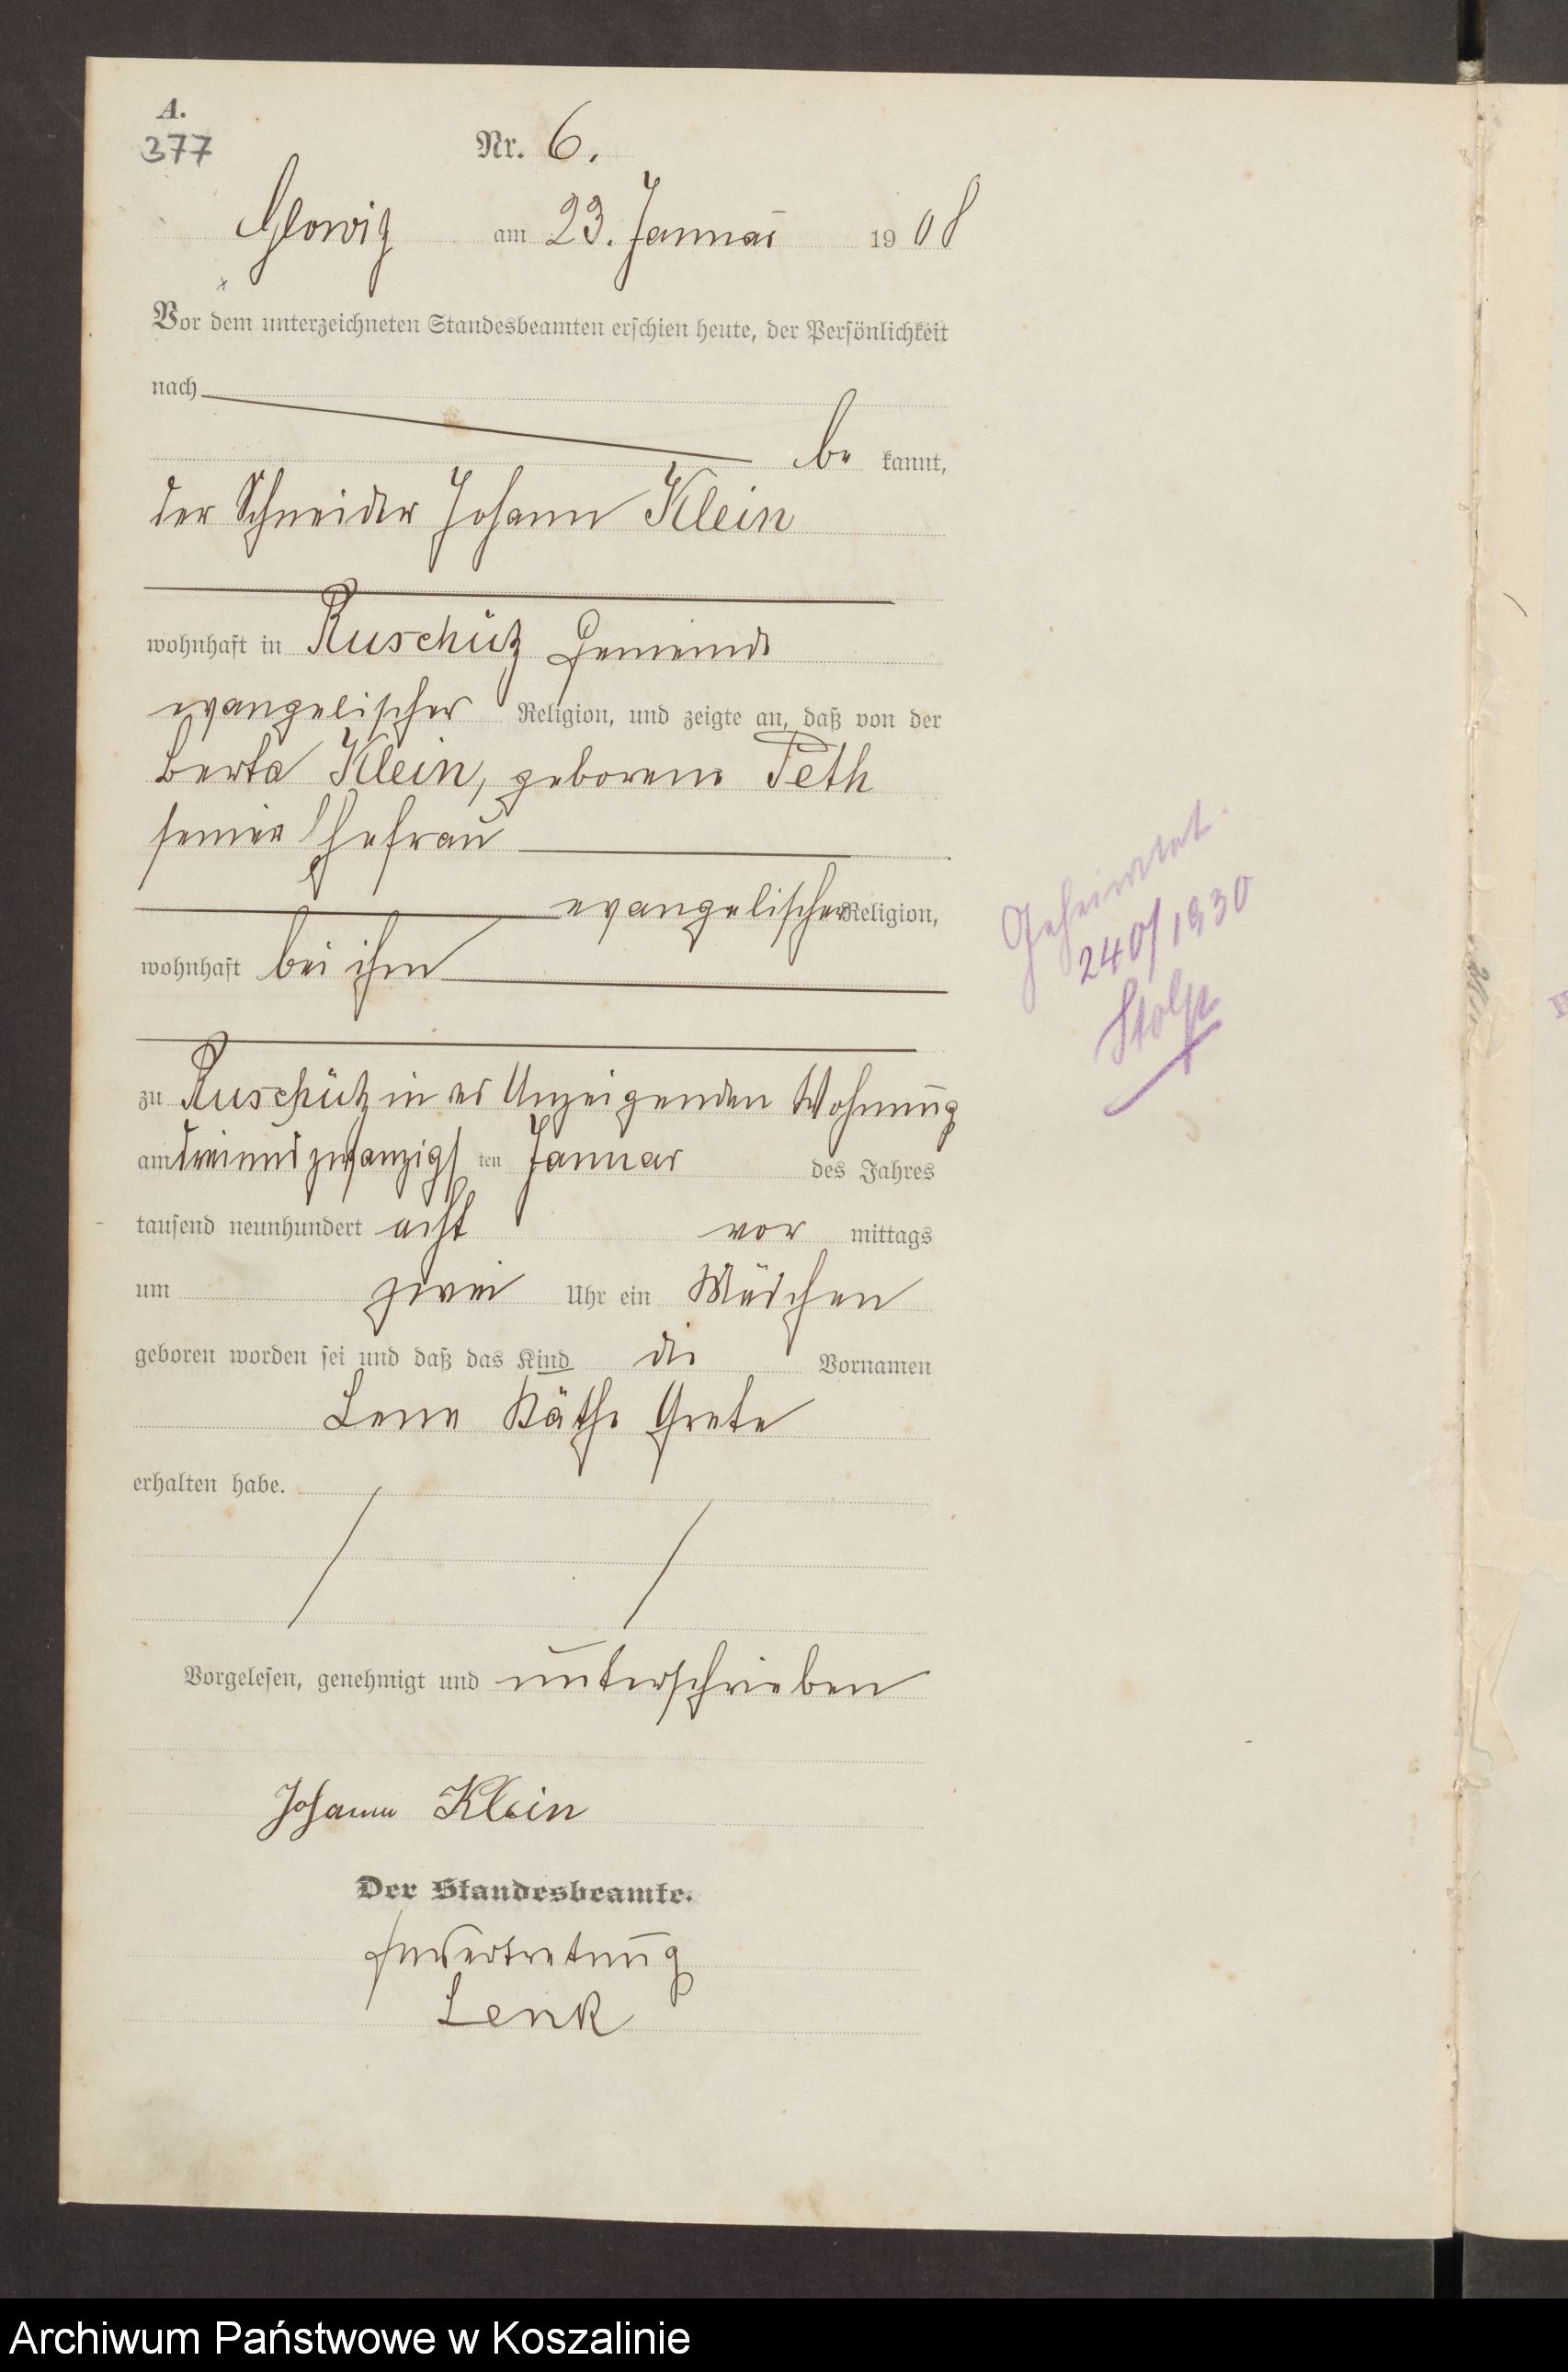 A.
377
Nr. 6.
Glowitz am 23. Januar 1908
Vor dem unterzeichneten Standesbeamten erschien heute, der Persönlichkeit
nach
be kannt,
der Schneider Johann Klein
wohnhaft in Ruschütz Gemeinde
evangelischer Religion, und zeigte an, daß von der
Berta Klein, geborene Peth
seiner Ehefrau
evangelischer Religion,
wohnhaft bei ihm
zu Ruschütz in des Anzeigenden Wohnung
am dreiundzwanzigsten Januar des Jahres
tausend neunhundert acht vor mittags
um zwei Uhr ein Mädchen
geboren worden sei und daß das Kind die Vornamen
Lene Käthe Grete
erhalten habe.
Vorgelesen, genehmigt und unterschrieben
Johann Klein
Der Standesbeamte.
In Vertretung
Lenk
Geheiratet
240/1930
Stolp
Archiwum Państwowe w Koszalinie